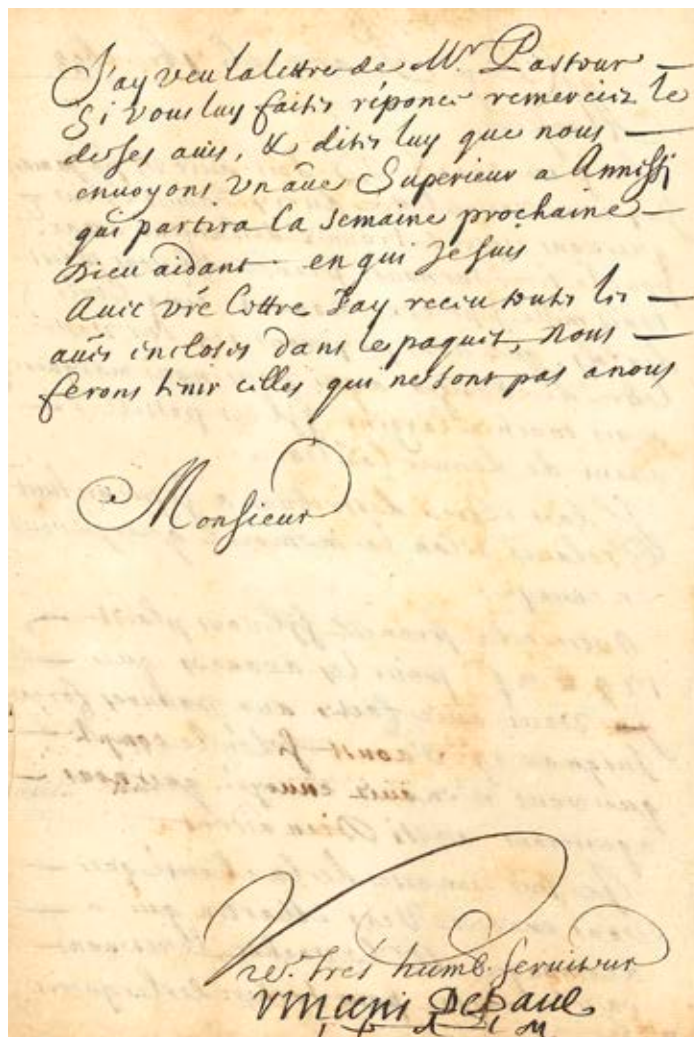 J'ay veu la lettre de Mr. Pastour
Si vous luy faites réponce remerciez le
de ses avis, & dites luy que nous
envoyons un aũe Superieur a Annissi
qui partira la semaine prochaine
Dieu aidant en qui Je suis
Avec vr̃e lettre J'ay receu toutes les
aũes incloses dans le paquet, nous
ferons tenir celles qui ne sont pas a nous
Monsieur
Vre. très humb. serviteur
Vincent Depaul